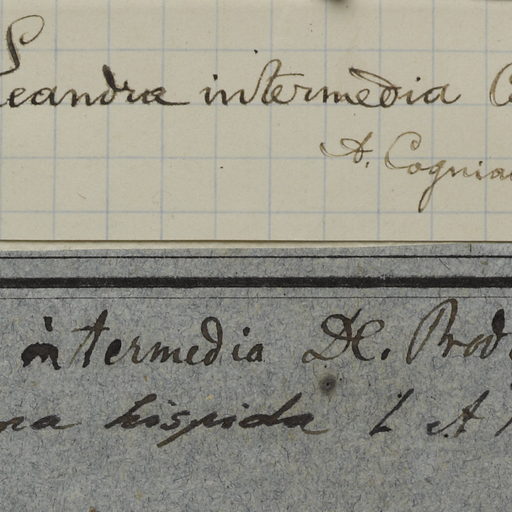 Leandra intermedia C
A. Cogniau
intermedia DC. Prod.
na hispida L A